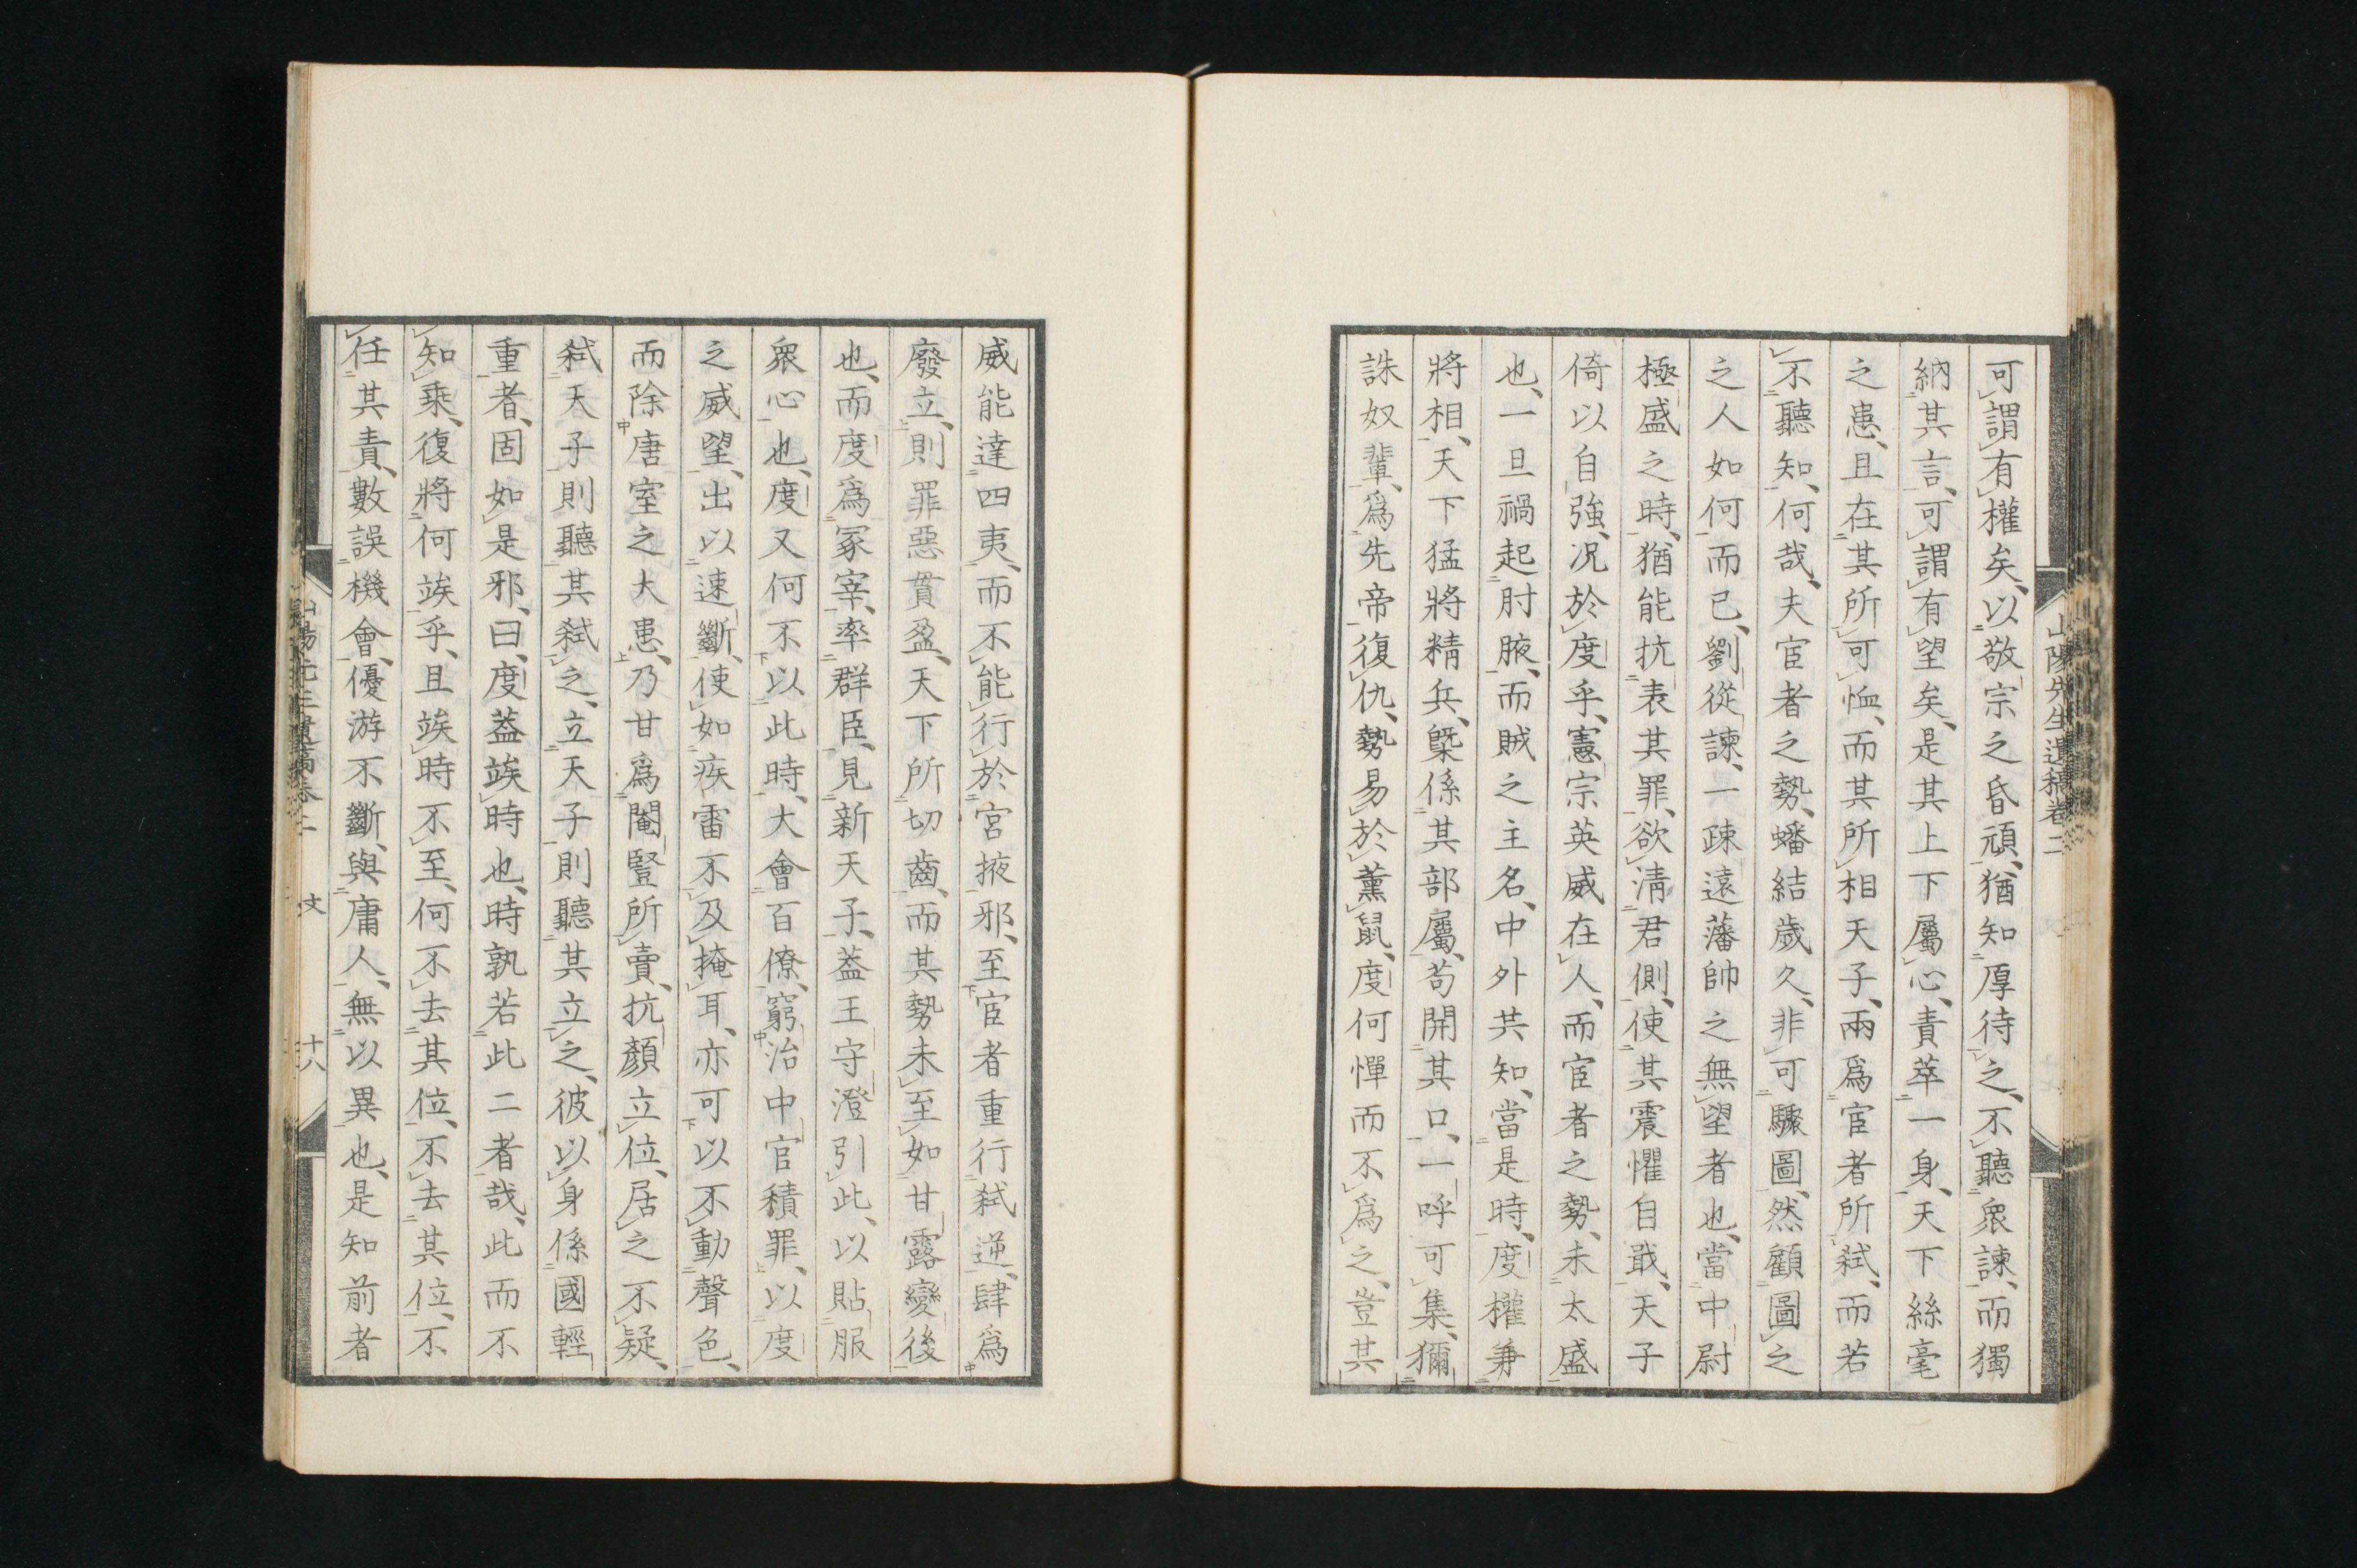 山陽先生遺稿卷二
可謂有權矣、以敬宗之昏頑、猶知厚待之、不聽衆諫、而獨
納其言、可謂有望矣、是其上下屬心、責萃一身、天下絲毫
之患、且在其所可恤、而其所相天子、兩爲宦者所弑、而若
不聽知、何哉、夫宦者之勢、蟠結歲久、非可驟圖、然顧圖之
之人如何而已、劉從諫、一疎遠藩帥之無望者也、當中尉
極盛之時、猶能抗表其罪、欲淸君側、使其震懼自戢、天子
倚以自強、况於度乎、憲宗英威在人、而宦者之勢、未太盛
也、一旦禍起肘腋、而賊之主名、中外共知、當是時、度權兼
將相、天下猛將精兵、槩係其部屬、苟開其口、一呼可集、獮
誅奴輩、爲先帝復仇、勢易於薰鼠、度何憚而不爲之、豈其
威能達四夷、而不能行於宮掖邪、至宦者重行弑逆、肆爲
廢立、則罪惡貫盈、天下所切齒、而其勢未至如甘露變後
也、而度爲冢宰、率群臣、見新天子、葢王守澄引此、以貼服
衆心也、度又何不以此時、大會百僚、窮治中官積罪、以度
之威望、出以速斷、使如疾雷不及掩耳、亦可以不動聲色、
而除唐室之大患、乃甘爲閹豎所賣、抗顏立位、居之不疑、
弑天子則聽其弑之、立天子則聽其立之、彼以身係國輕
重者、固如是邪、曰、度葢竢時也、時孰若此二者哉、此而不
知乘、復將何竢乎、且竢時不至、何不去其位、不去其位、不
任其責、數誤機會、優游不斷、與庸人、無以異也、是知前者
山陽先生遺稿卷二 文 十八